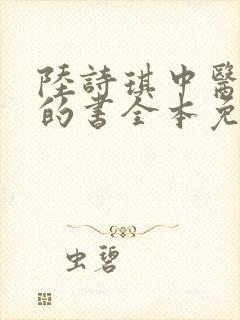 陸詩琪中醫
的書全本免
虫碧